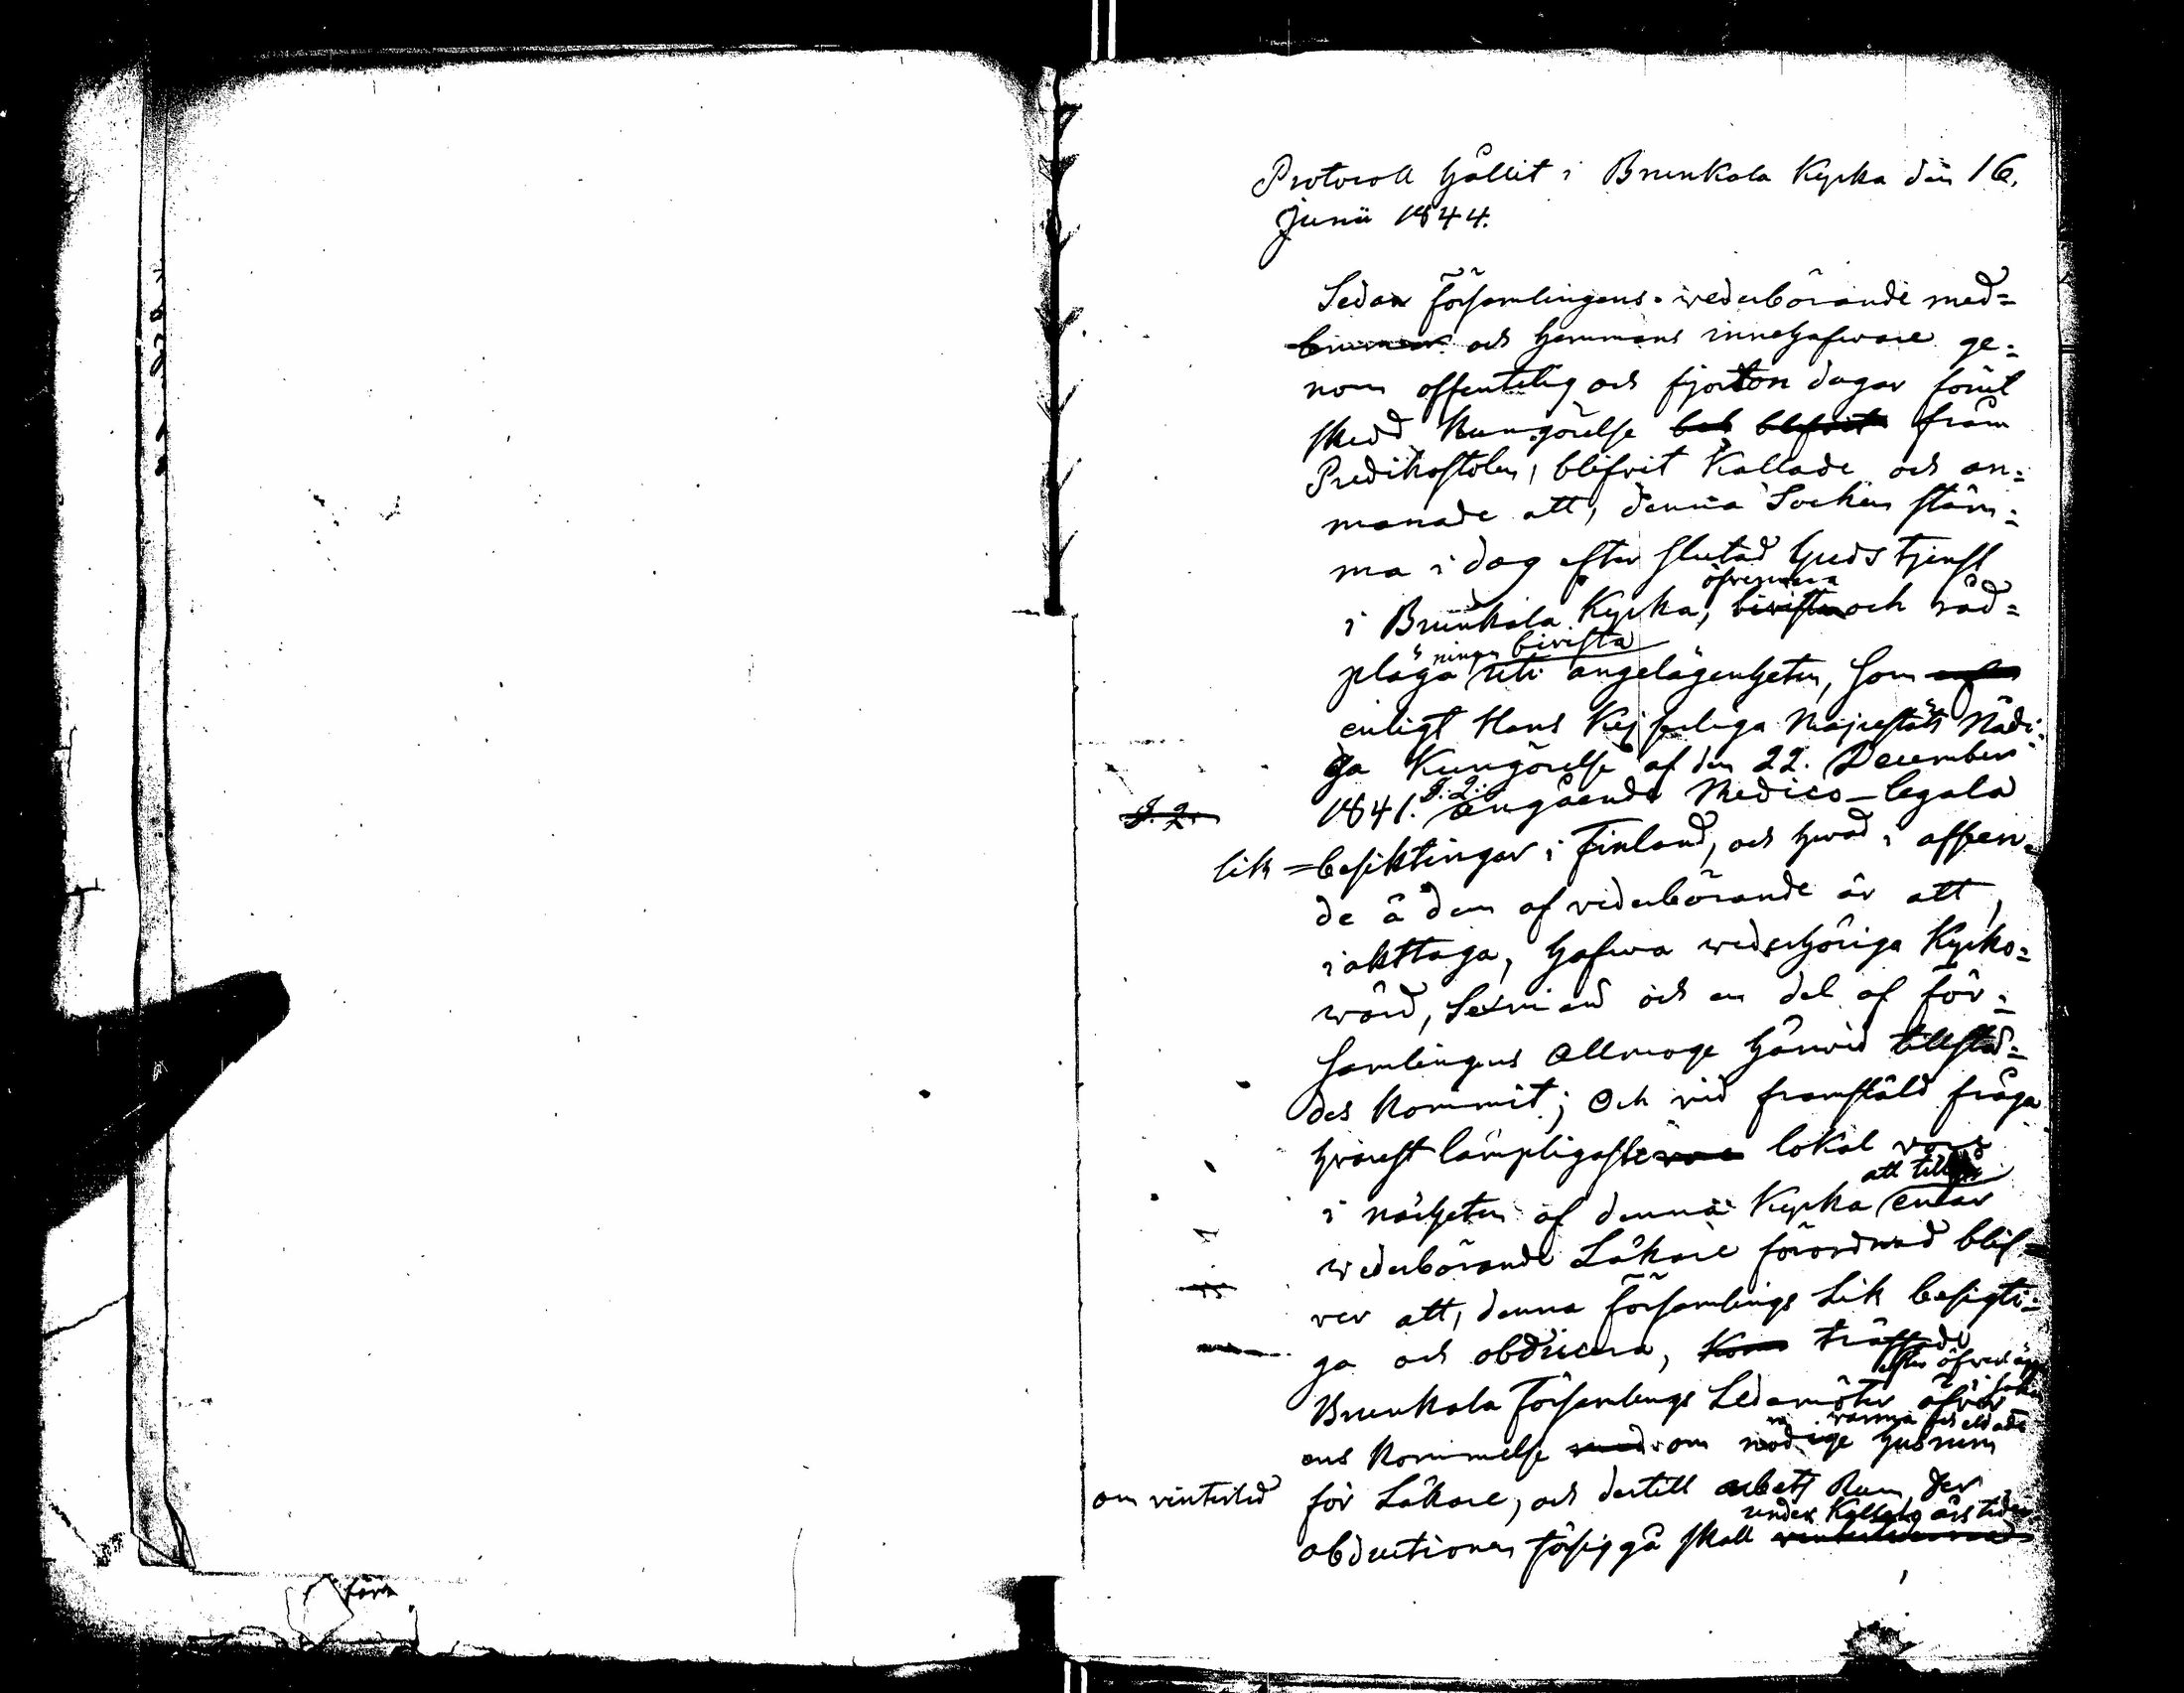 Protocoll hållit i Brunkala Kyrka den 16.
Junii 1844.
Sedan församlingens wederbörande med=
och hemmans innehafware ge=
nom offentelig och fjorton dagar förut
skedd Kungörelse från
Predikostolen, blifvit Kallade och an=
manade att, denna Socken stäm=
ma i dag efter slutad Gudstjenst
i Brunkala Kyrka, bivista och råd=
bivista
pläga uti angelägenheten, som
enligt Hans Kejserliga Majestäts Nådi=
ga Kungörelse af den 22. December
1841. §. 2. angående Medico-legala
§. 2.
lik=besiktingar i Finland, och hwad i affen=
de å dem af vederbörande är att
iakttaga, hafwa wederhöriga Kyrko=
wärd, Sexmän och en del af för=
samlingens Allmoge härwid tillstä=
des kommit; Och vid framstäld fråga
hvarest lämpligaste lokal vore
att
i närheten af denna Kyrka
wederbörande Läkare förordnad blif=
ver att, denna församlings Lik besigti=
ga och obducera, träffade
efter
Brunkala Församlings Ledamöter öfver
varma och eldade
ens kommelse om nödige husrum
om vintertid för Läkare, och dertill arbets Rum der
under Kallare årstiden
obductionen försiggå skall
föra